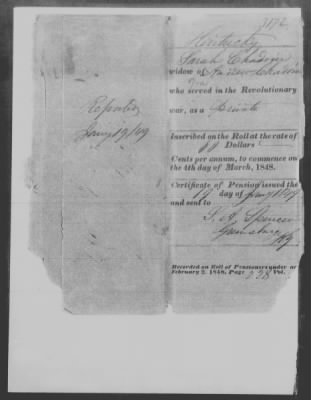 7172
Kentucky
Sarah
widow of Andrew
who served in the Revolutionary
war, as a Private
Inscribed on the Roll at the rate of
Dollars
Cents per annum, to commence on
the 4th day of March, 1848.
Certificate of Pension issued the
19 day of Jany 1849
and sent to
S. A. Spencer
Greensburg
Ky
Recorded on Roll of Pensioners under act
February 2, 1848, Page 228 Vol.
Jany 19/49